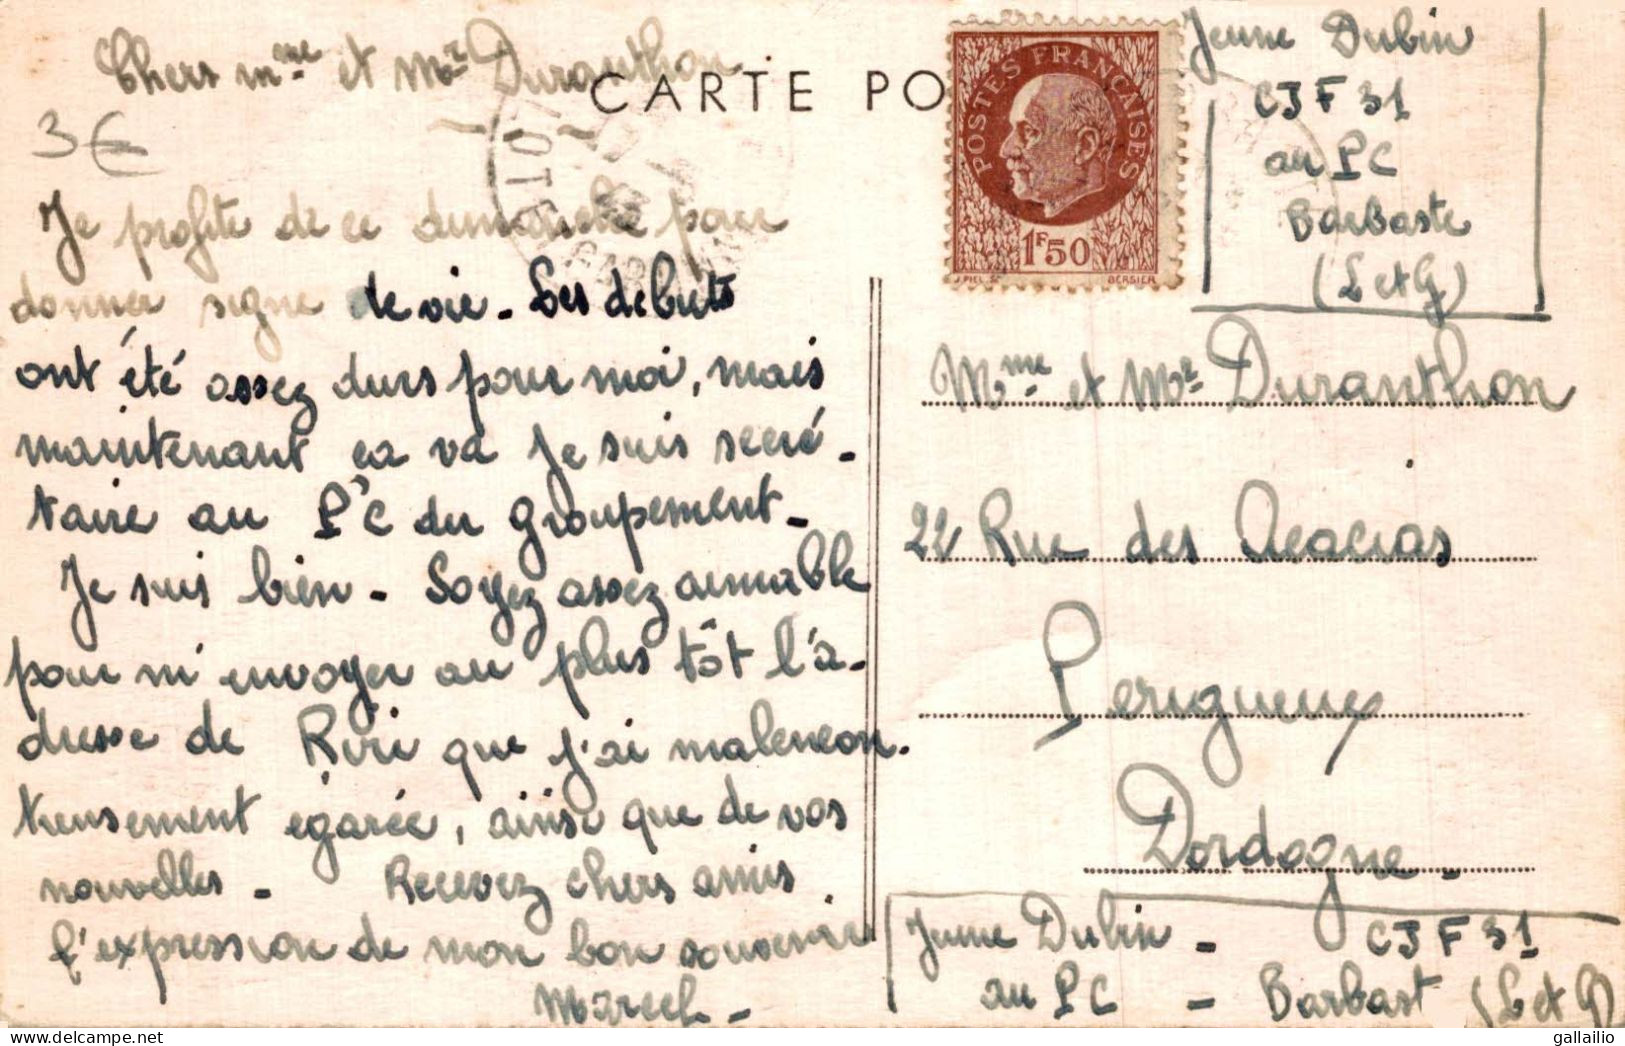 Chers Mme et Mr Duranthon
3€
Je profite de ce dimanche pour
donner signe de vie - Les debuts
ont été assez durs pour moi, mais
maintenant ca va Je suis secré-
taire au P'C du Groupement -
Je suis bien - Soyez assez aimable
pour m'envoyer au plus tôt l'a-
dresse de Riri que j'ai malencon-
treusement égarée, ainsi que de vos
nouvelles - Recevez chers amis
l'expression de mon bon souvenir
Marcel -
CARTE PO
POSTES FRANÇAISES
1F50
J. PIEL SC
BERSIER
Jeune Dubin
CJF 31
au PC
Barbaste
(L et G)
Mme et Mr Duranthon
22 Rue des Acacias
Perigueux
Dordogne -
Jeune Dubin - CJF 31
au PC - Barbast (L et G)
gallailio